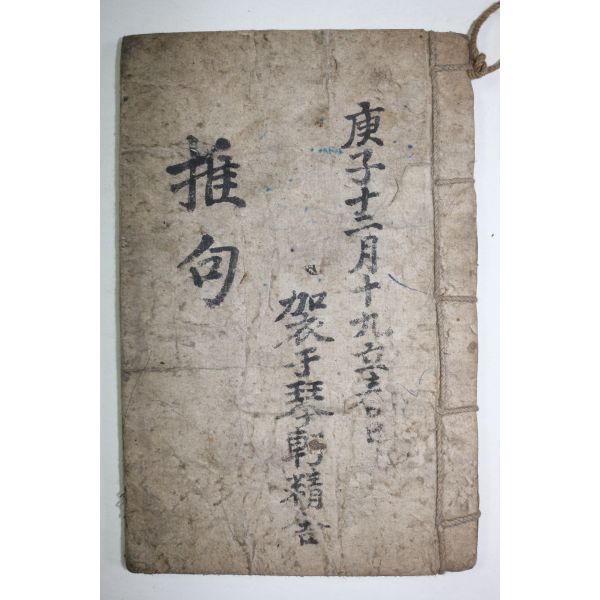 庚子十二月十九立春日
袈于琴軒精舍
推句